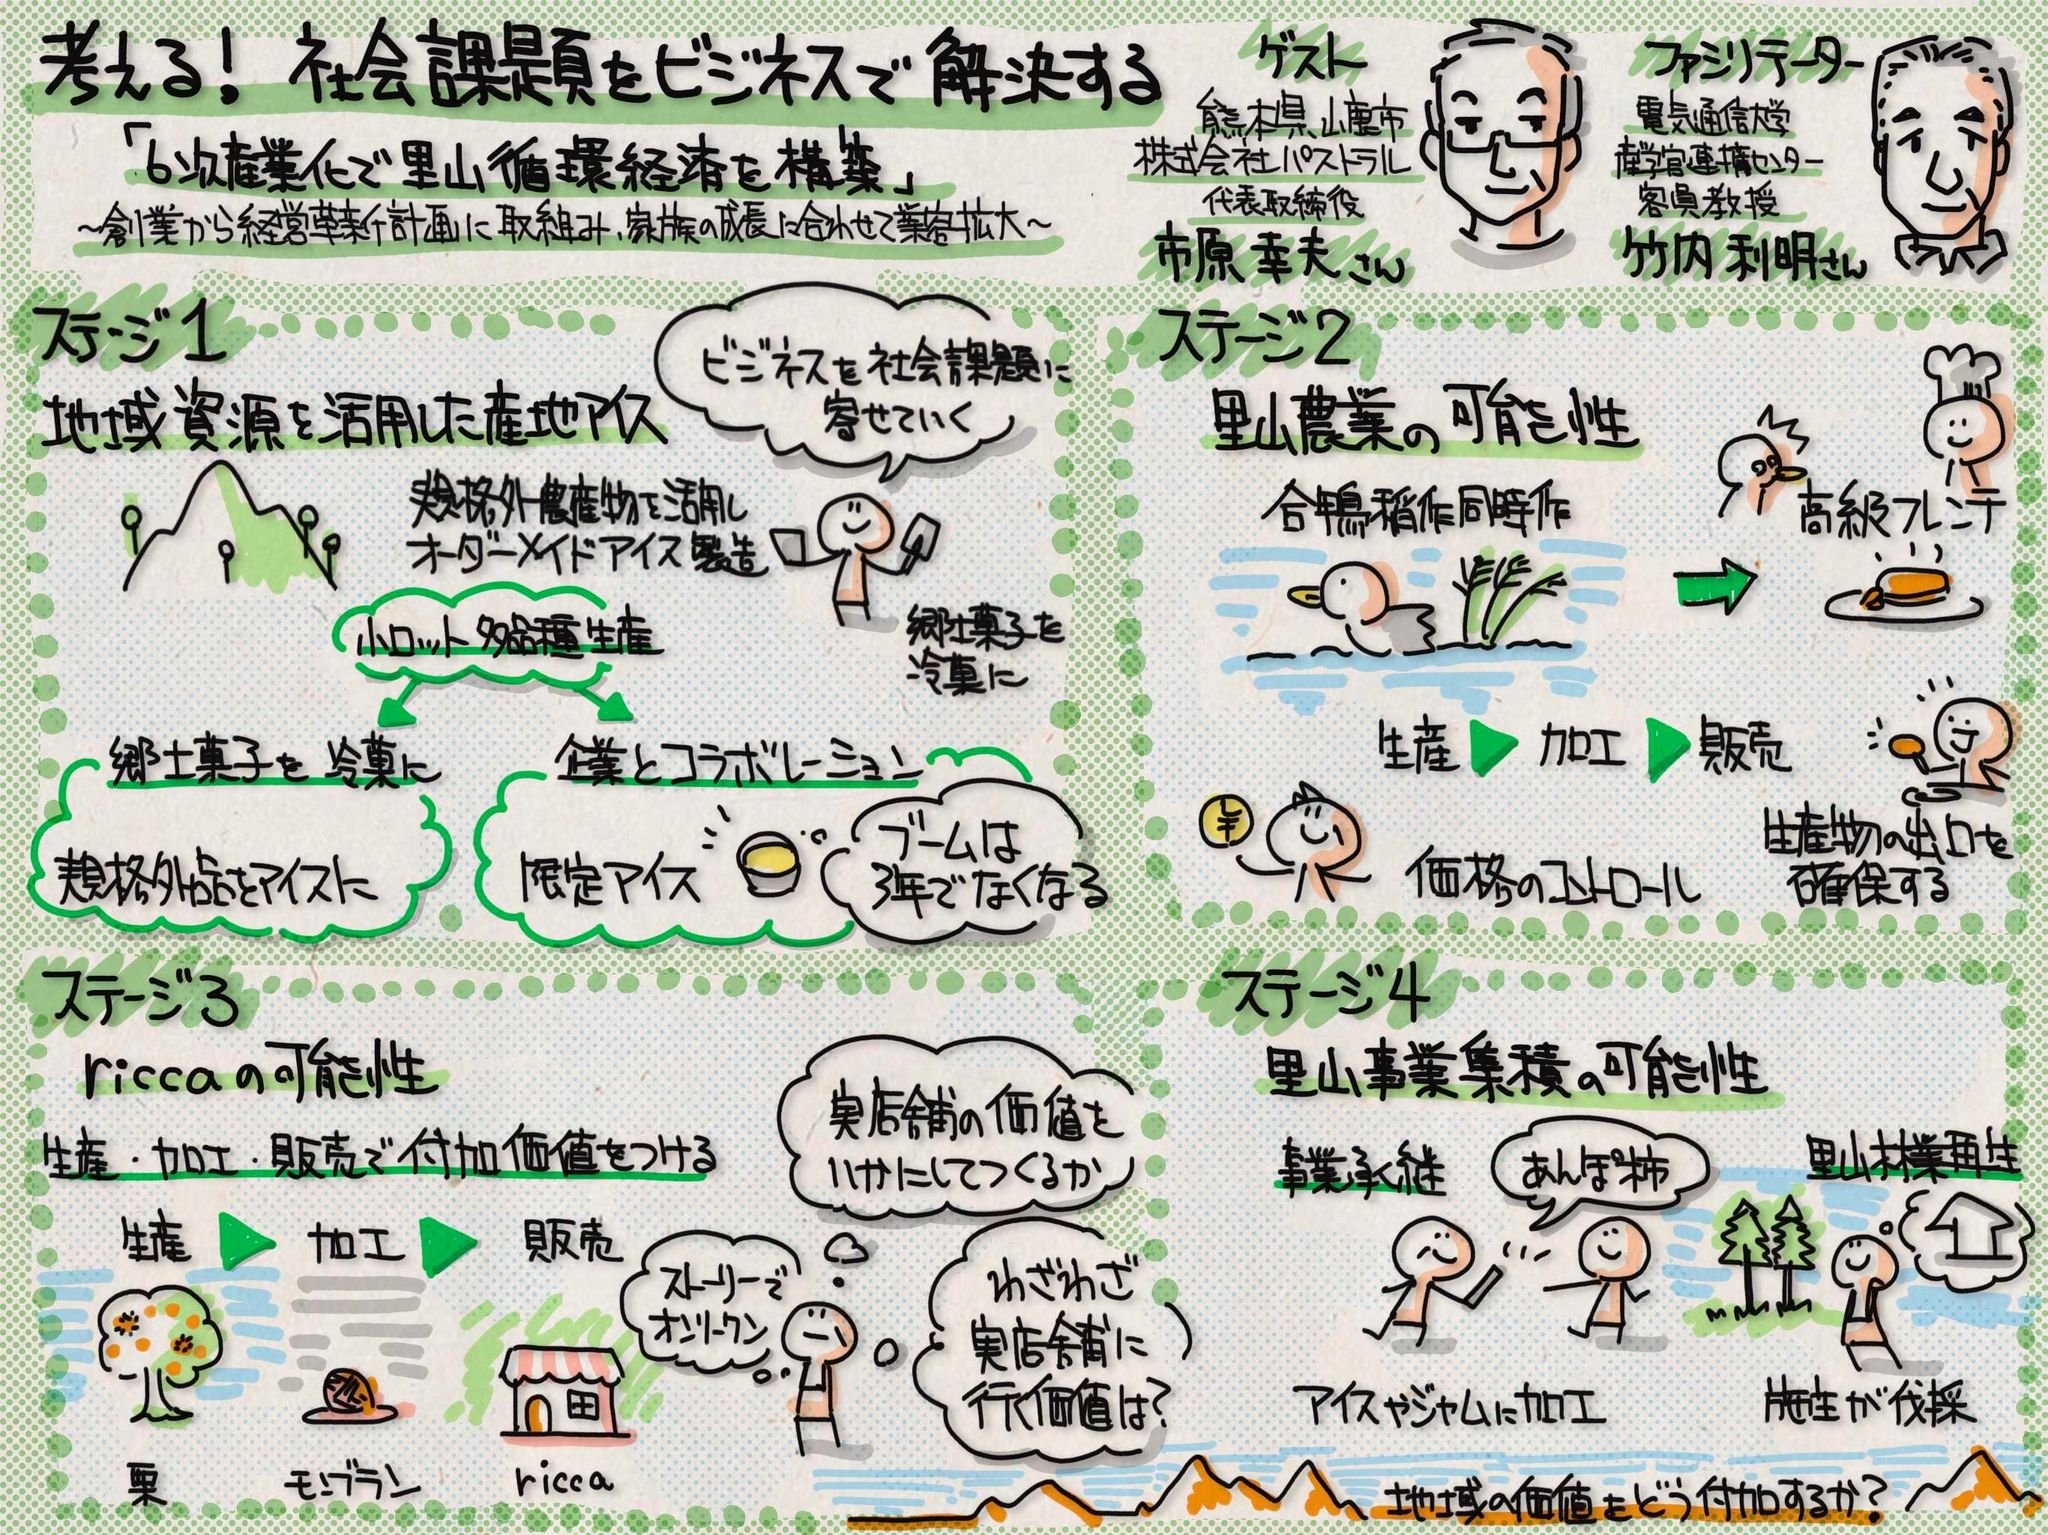 考える! 社会課題をビジネスで解決する
「6次産業化で里山循環経済を構築」
～創業から経営革新計画に取組み、家族の成長に合わせて業容拡大～
ゲスト
熊本県山鹿市
株式会社パストラル
代表取締役
市原幸夫さん
ファシリテーター
電気通信大学
産学官連携センター
客員教授
竹内利明さん
ステージ1
地域資源を活用した産地アイス
ビジネスを社会課題に
寄せていく
規格外農産物を活用し
オーダーメイドアイス製造
小ロット多品種生産
郷土菓子を
冷菓に
郷土菓子を冷菓に
規格外品をアイスに
企業とコラボレーション
限定アイス
ブームは
3年でなくなる
ステージ2
里山農業の可能性
合鴨稲作同時作
高級フレンチ
生産 加工 販売
価格のコントロール
生産物の出口を
確保する
ステージ3
riccaの可能性
生産・加工・販売で付加価値をつける
生産 加工 販売
栗
モンブラン
ricca
実店舗の価値を
いかにしてつくるか
ストーリーで
オンリーワン
わざわざ
実店舗に
行く価値は?
ステージ4
里山事業集積の可能性
事業承継
あんぽ柿
アイスやジャムに加工
里山林業再生
が伐採
地域の価値をどう付加するか?